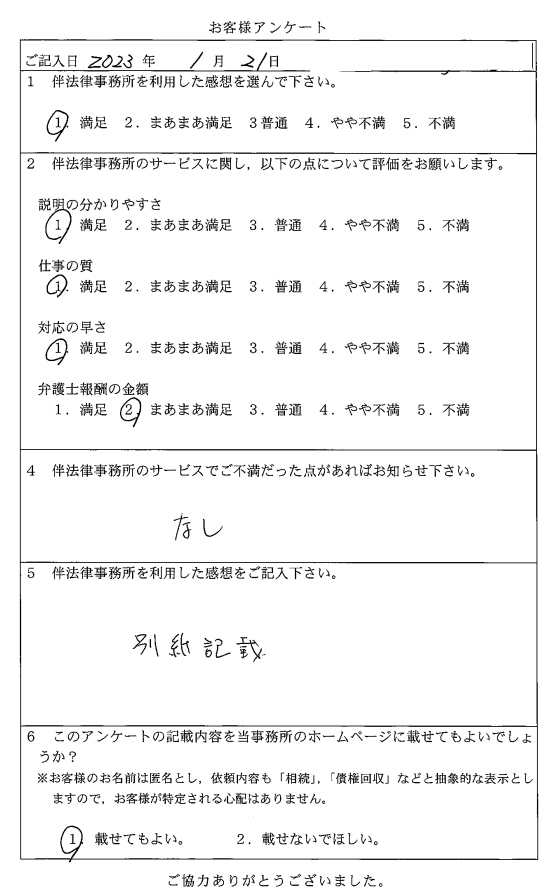 お客様アンケート
ご記入日 2023 年 1 月 21 日
1 伴法律事務所を利用した感想を選んで下さい。
1. 満足 2. まあまあ満足 3 普通 4. やや不満 5. 不満
2 伴法律事務所のサービスに関し，以下の点について評価をお願いします。
説明の分かりやすさ
1. 満足 2. まあまあ満足 3. 普通 4. やや不満 5. 不満
仕事の質
1. 満足 2. まあまあ満足 3. 普通 4. やや不満 5. 不満
対応の早さ
1. 満足 2. まあまあ満足 3. 普通 4. やや不満 5. 不満
弁護士報酬の金額
1. 満足 2. まあまあ満足 3. 普通 4. やや不満 5. 不満
4 伴法律事務所のサービスでご不満だった点があればお知らせ下さい。
なし
5 伴法律事務所を利用した感想をご記入下さい。
別紙記載
6 このアンケートの記載内容を当事務所のホームページに載せてもよいでしょ
うか？
※お客様のお名前は匿名とし，依頼内容も「相続」，「債権回収」などと抽象的な表示とし
ますので，お客様が特定される心配はありません。
1. 載せてもよい。 2. 載せないでほしい。
ご協力ありがとうございました。